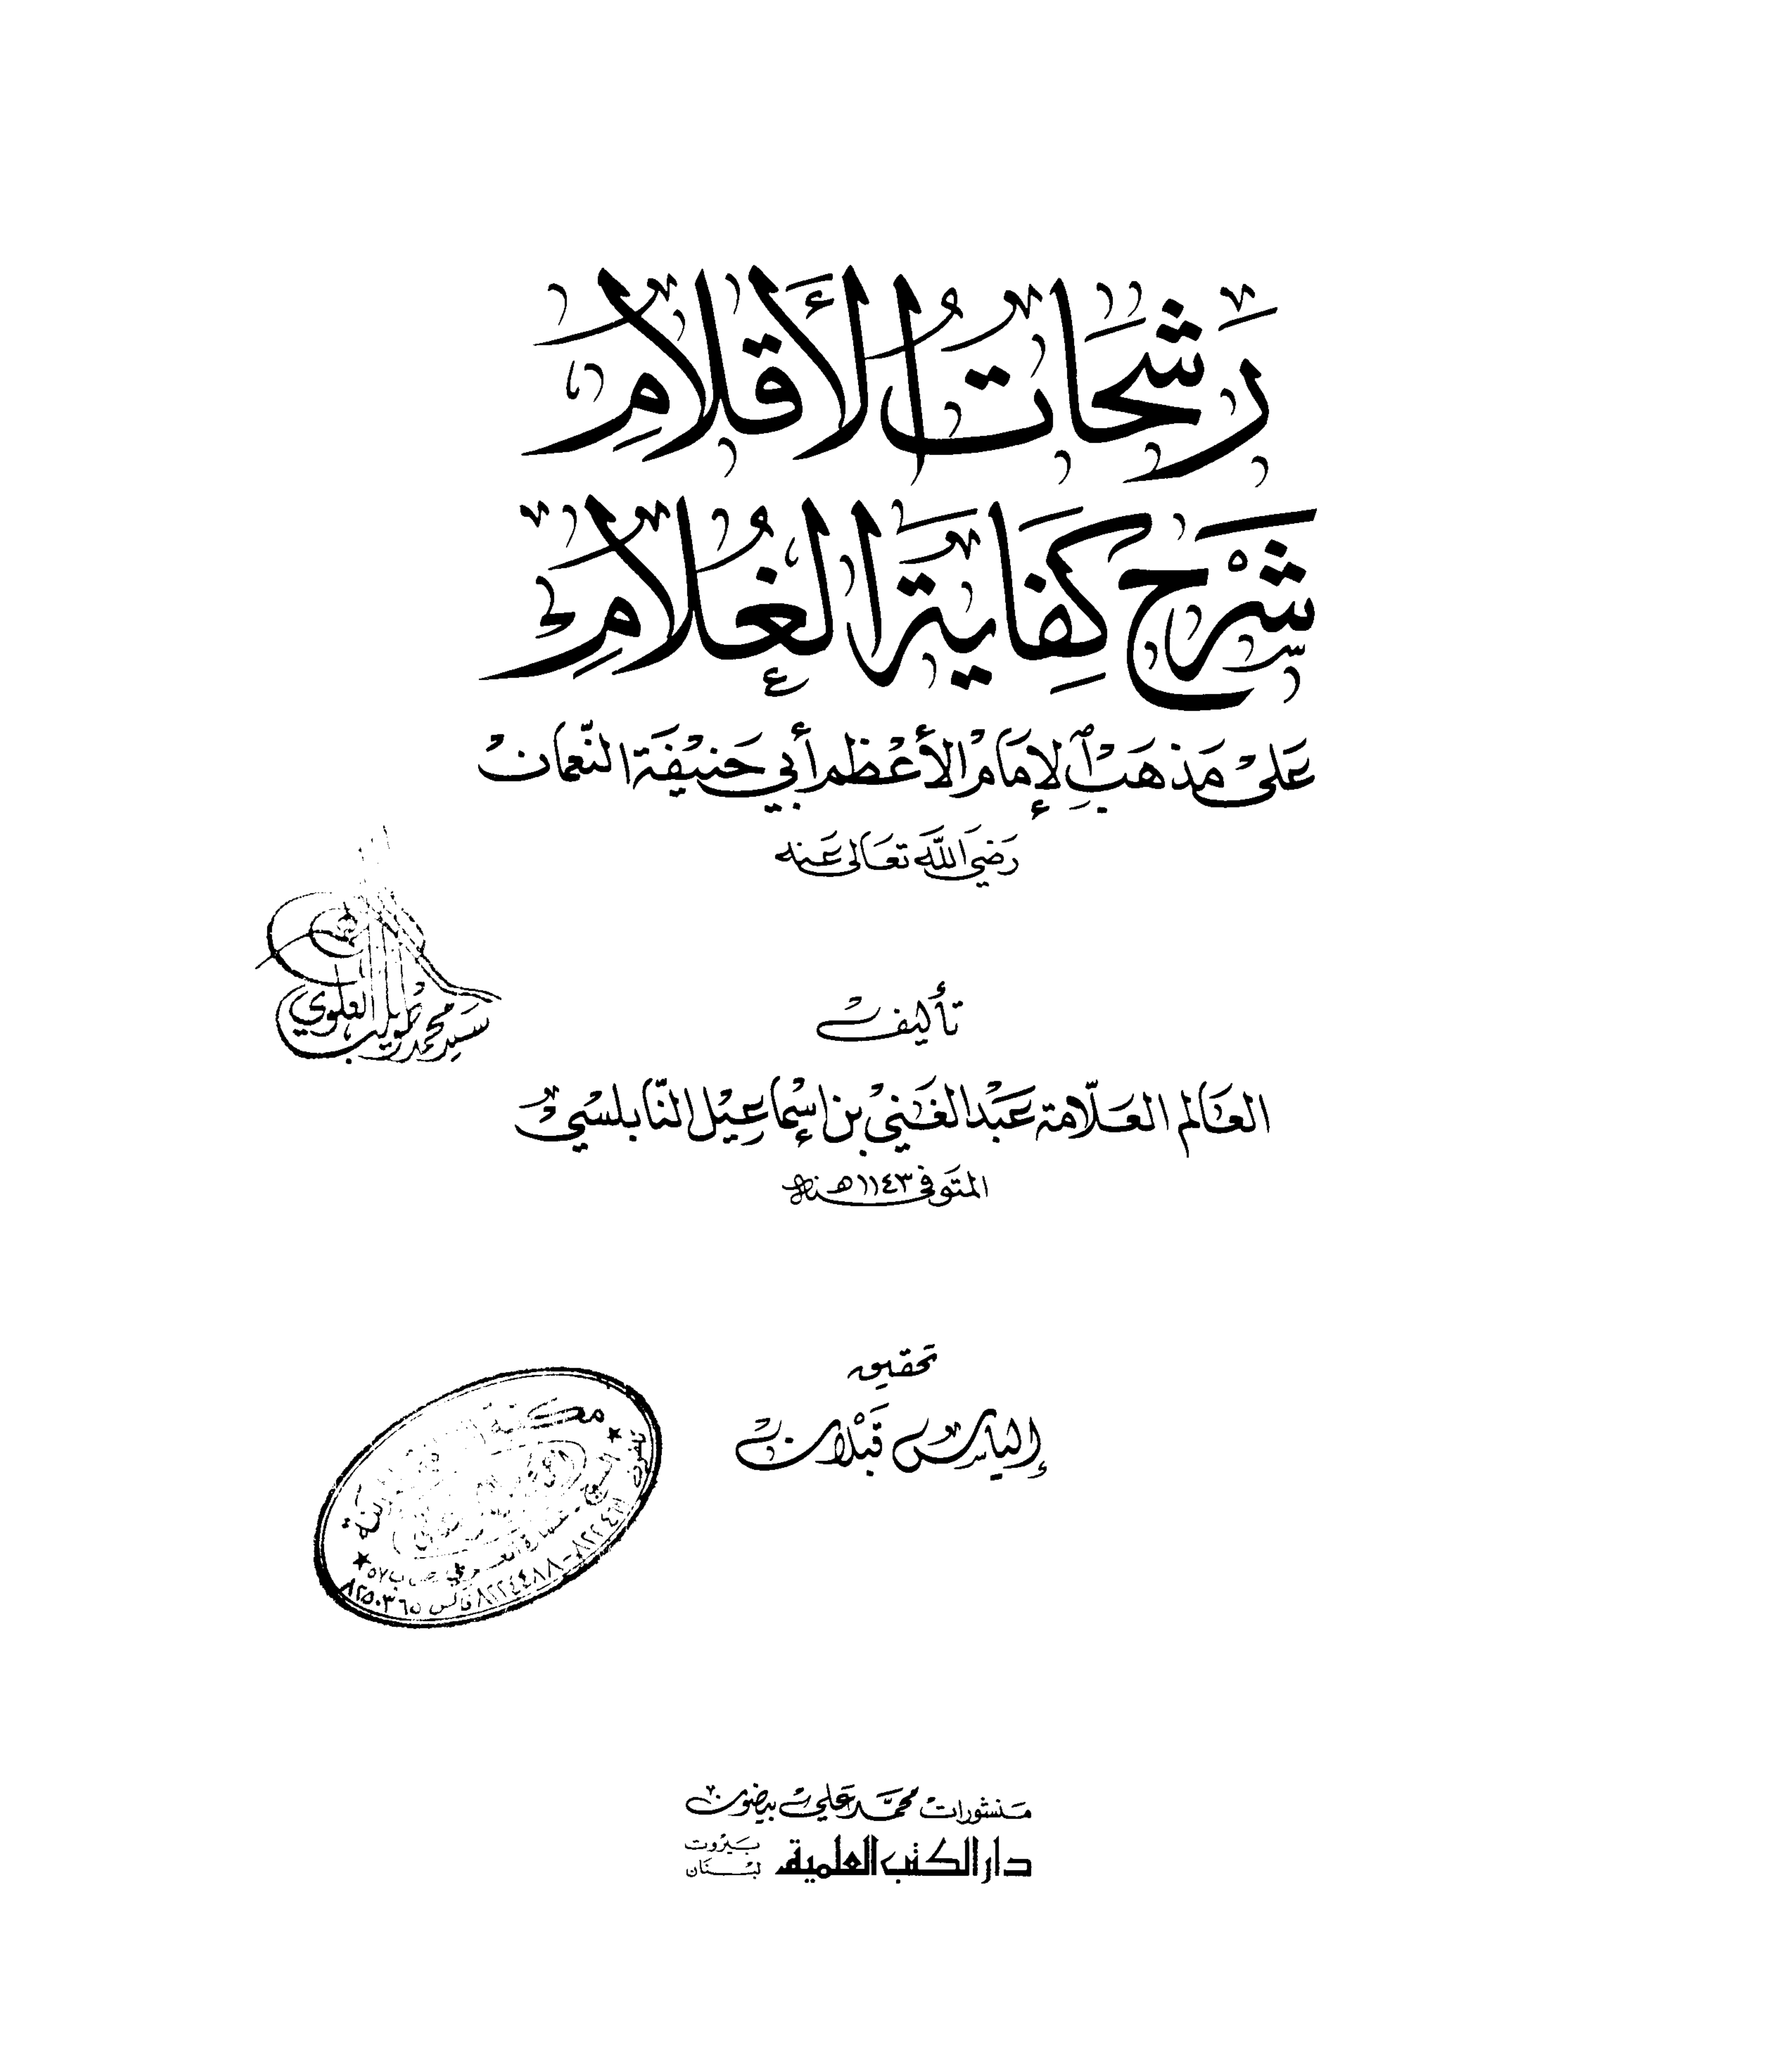 رَشَحَاتُ الأَقْلَامِ
شَرْح كِفَايَة الغُلَامِ
عَلىْ مَذهَبْ الإِمَامْ الأعْظم أبي حَنيْفَة النّعمَان
رَضيَ اللّه تعَالى عَنه
تأليف
العَالم العَلّامة عَبْد الغَنيْ بن إسْمَاعِيْل النّابلسيْ
المتَوفى ١١٤٣ هـ سنة
تحقيق
إلياس قَبْلان
سيد محمد العلوي
مكتبة
ص ب ٥٧
فاكس ٨٢٥٠٣٦٥
مَنشورات محمَّد عَلي بيضون
دار الكتب العلمية
بَيرُوت
لبْنَان